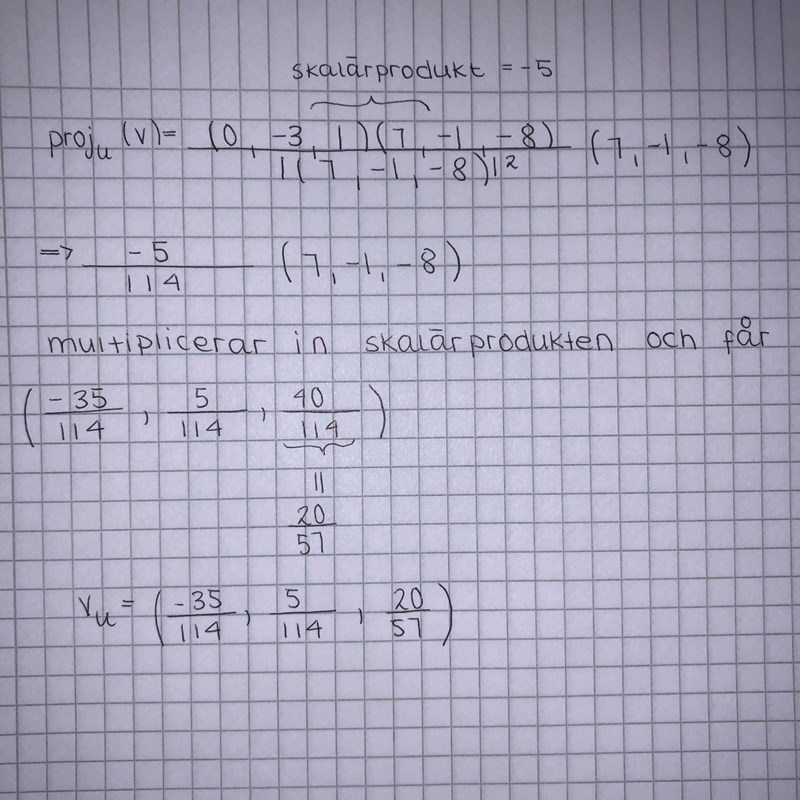 skalärprodukt = -5
proju (v) = (0, -3, 1)(7, -1, -8) / |(7, -1, -8)|² (7, -1, -8)
=> -5/114 (7, -1, -8)
multiplicerar in skalärprodukten och får
(-35/114, 5/114, 40/114)
=
20/57
vu = (-35/114, 5/114, 20/57)